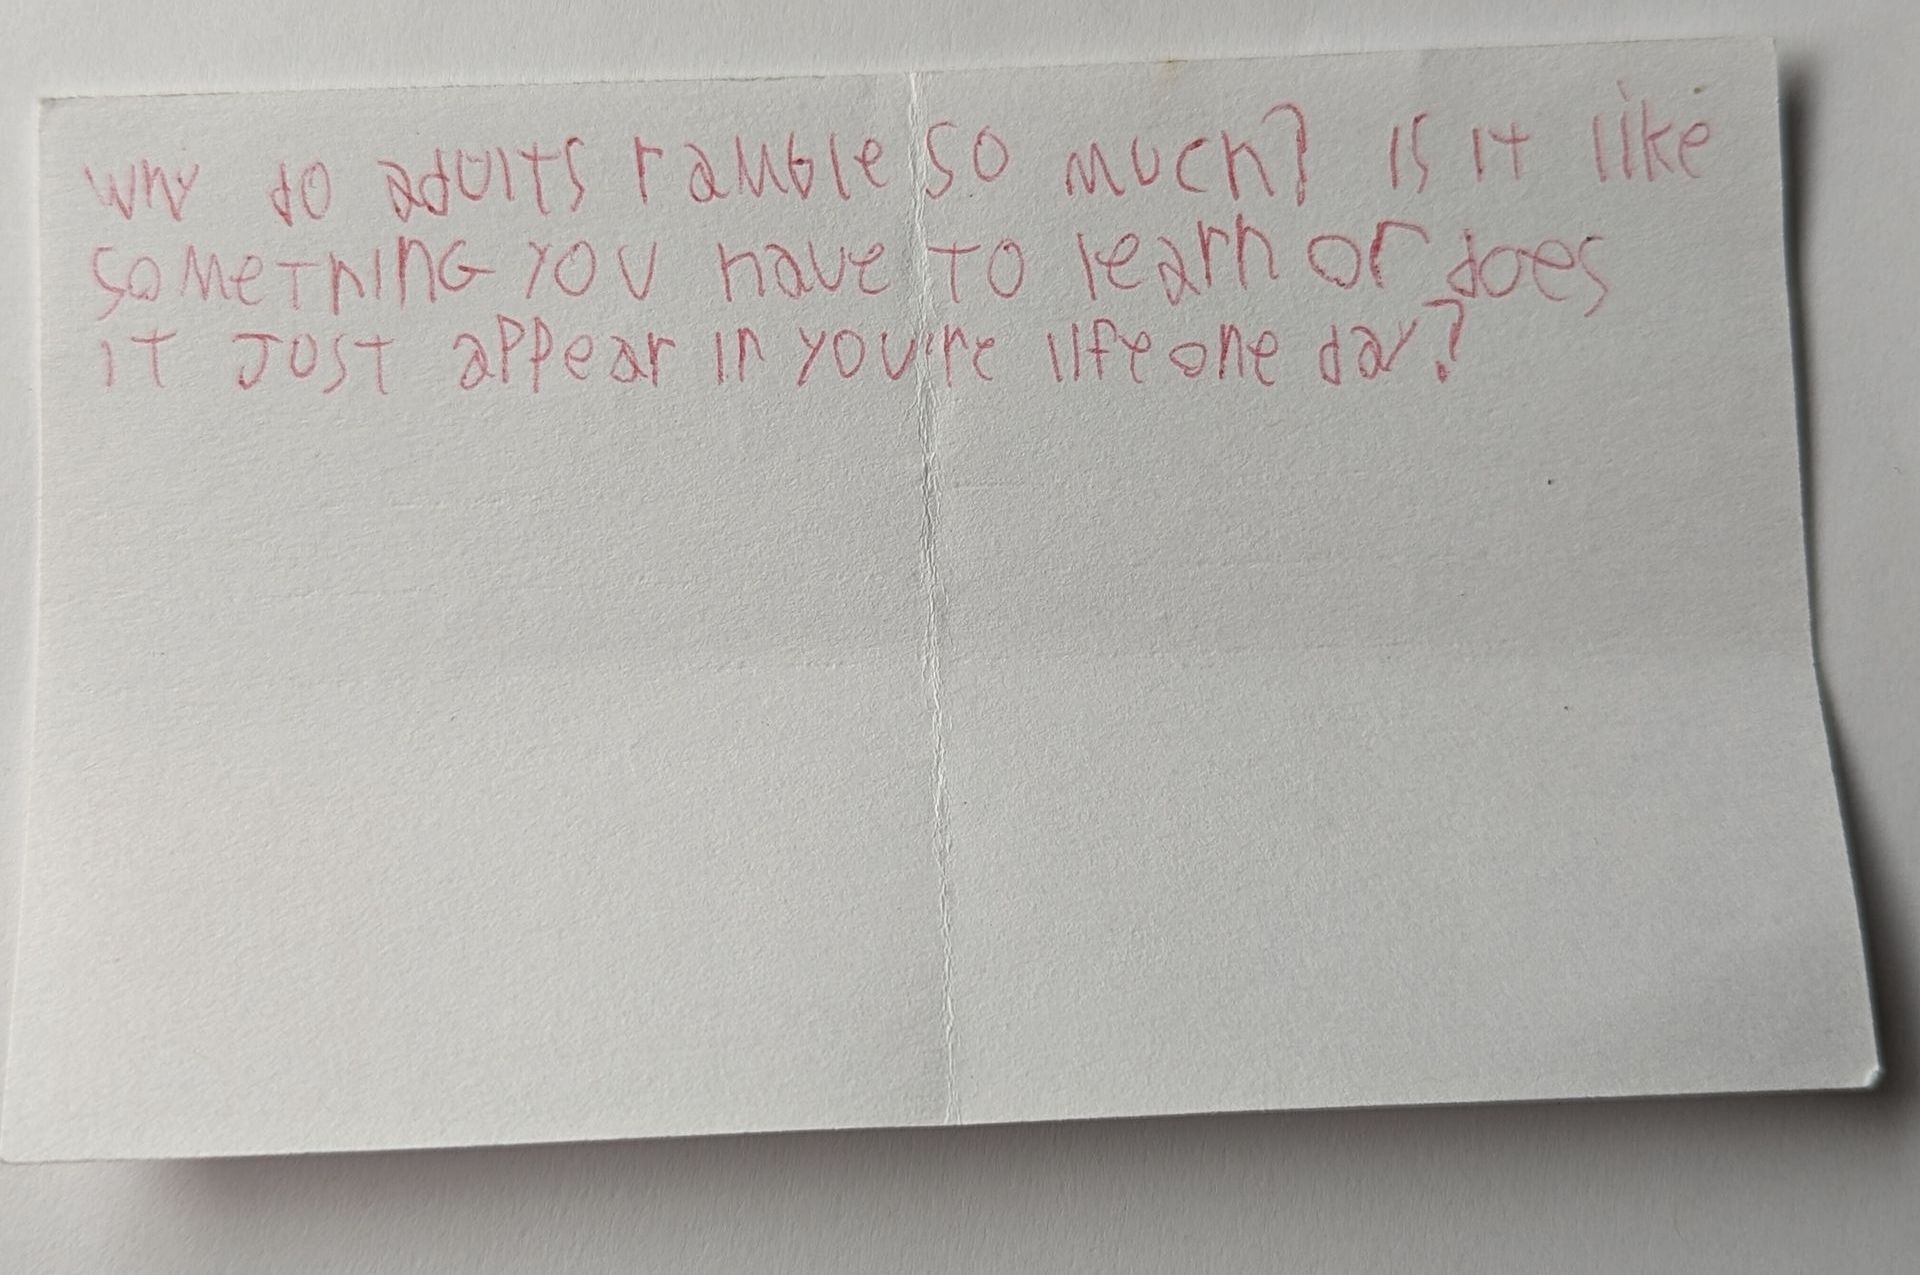 Why do adults ramble so much? Is it like
something you have to learn or does
it Just appear in you're life one day?